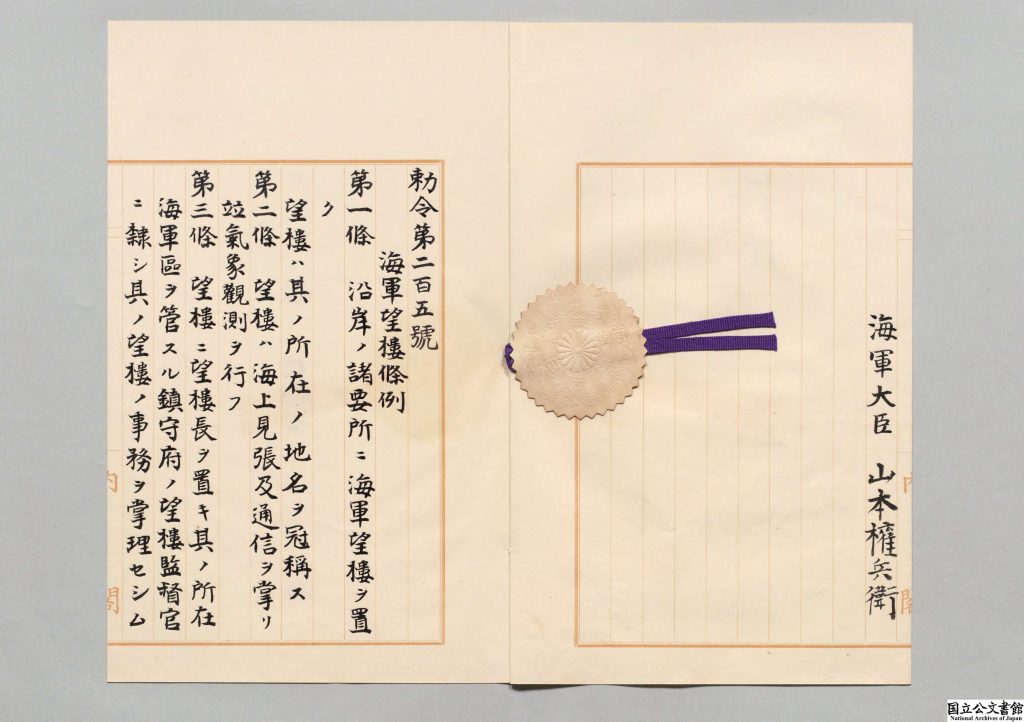 海軍大臣　山本權兵衛
勅令第二百五號
海軍望樓條例
第一條　沿岸ノ諸要所ニ海軍望樓ヲ置
ク
望樓ハ其ノ所在ノ地名ヲ冠稱ス
第二條　望樓ハ海上見張及通信ヲ掌リ
竝氣象觀測ヲ行フ
第三條　望樓ニ望樓長ヲ置キ其ノ所在
海軍區ヲ管スル鎮守府ノ望樓監督官
ニ隸シ其ノ望樓ノ事務ヲ掌理セシム
内閣
内閣
国立公文書館
National Archives of Japan